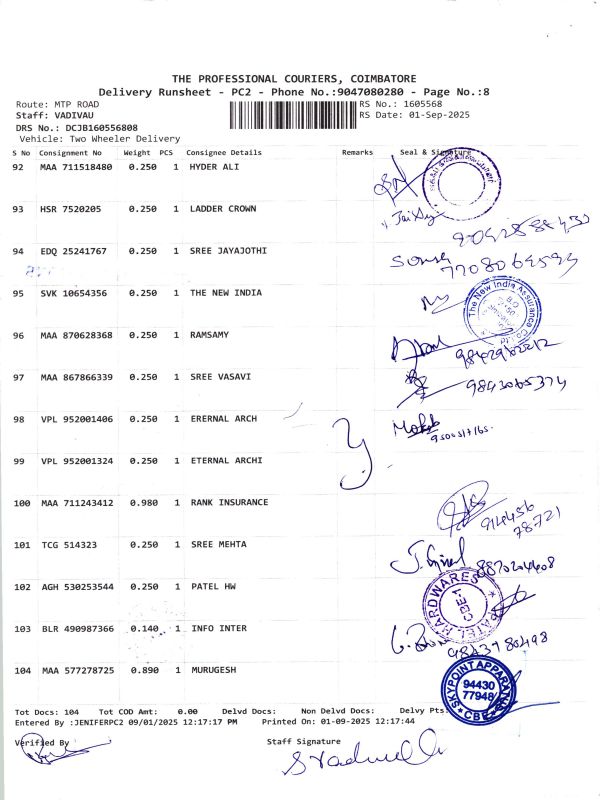 THE PROFESSIONAL COURIERS, COIMBATORE
Delivery Runsheet - PC2 - Phone No.:9047080280 - Page No.:8
Route: MTP ROAD
RS No.: 1605568
Staff: VADIVAU
RS Date: 01-Sep-2025
DRS No.: DCJB160556808
Vehicle: Two Wheeler Delivery
S No Consignment No Weight PCS Consignee Details Remarks Seal & Signature
92 MAA 711518480 0.250 1 HYDER ALI
93 HSR 7520205 0.250 1 LADDER CROWN
94 EDQ 25241767 0.250 1 SREE JAYAJOTHI
95 SVK 10654356 0.250 1 THE NEW INDIA
The New India Assurance Co.
96 MAA 870628368 1 RAMSAMY 0.250
97 MAA 867866339 0.250 1 SREE VASAVI
9843065374
98 VPL 952001406 0.250 1 ERERNAL ARCH
99 VPL 952001324 0.250 1 ETERNAL ARCHI
100 MAA 711243412 0.980 1 RANK INSURANCE
101 TCG 514323 0.250 1 SREE MEHTA
102 AGH 530253544 0.250 1 PATEL HW
PATEL HARDWARES
CBE-1
103 BLR 490987366 0.140 1 INFO INTER
9843780498
104 MAA 577278725 0.890 1 MURUGESH
SKYPOINT APPARATNS
94430
77948
CBE
Tot Docs: 104 Tot COD Amt: 0.00 Delvd Docs: Non Delvd Docs: Delvy Pts:
Entered By :JENIFERPC2 09/01/2025 12:17:17 PM Printed On: 01-09-2025 12:17:44
Verified By
Staff Signature